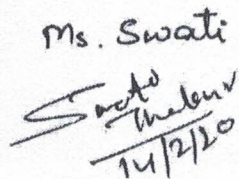 Ms. Swati
Swati
Thakur
14/2/20